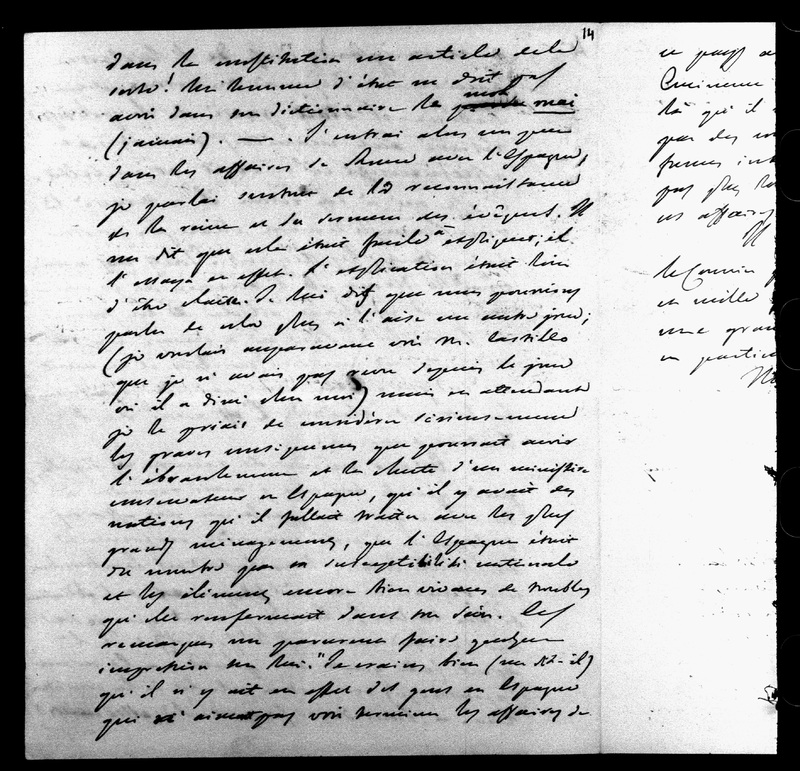 14
dans la constitution un article de la
sorte! Un homme d'état ne doit pas
avoir dans son dictionnaire le mot mai
(jamais). — . J'entrai alors un peu
dans les affaires de Rome avec l'Espagne,
je parlai surtout de la reconnaissance
de la reine et du serment des évêques. Il
me dit que cela était facile à expliquer; il
l'essaya en effet. L'explication était loin
d'être claire. Je lui dis que nous pourrions
parler de cela plus à l'aise un autre jour;
(je voulais auparavant voir M. Castillo
que je n'avais pas revu depuis le jour
où il a diné chez moi) mais en attendant
je le priais de considérer sérieusement
les graves conséquences que pourrait avoir
l'ébranlement et la chute d'un ministère
conservateur en Espagne, qu'il y avait des
nations qu'il fallait traiter avec les plus
grands ménagements, que l'Espagne était
du nombre par sa susceptibilité nationale
et les éléments encore bien vivaces de troubles
qu'elle renfermait dans son sein. Ces
remarques me parurent faire quelque
impression sur lui. "Je crains bien (me dit-il)
qu'il n'y ait en effet des gens en Espagne
qui n'aiment pas voir terminer les affaires de
ce pays
là qu'il
par des
pas plus
ces affaires
le Courrier
et mille
une
en